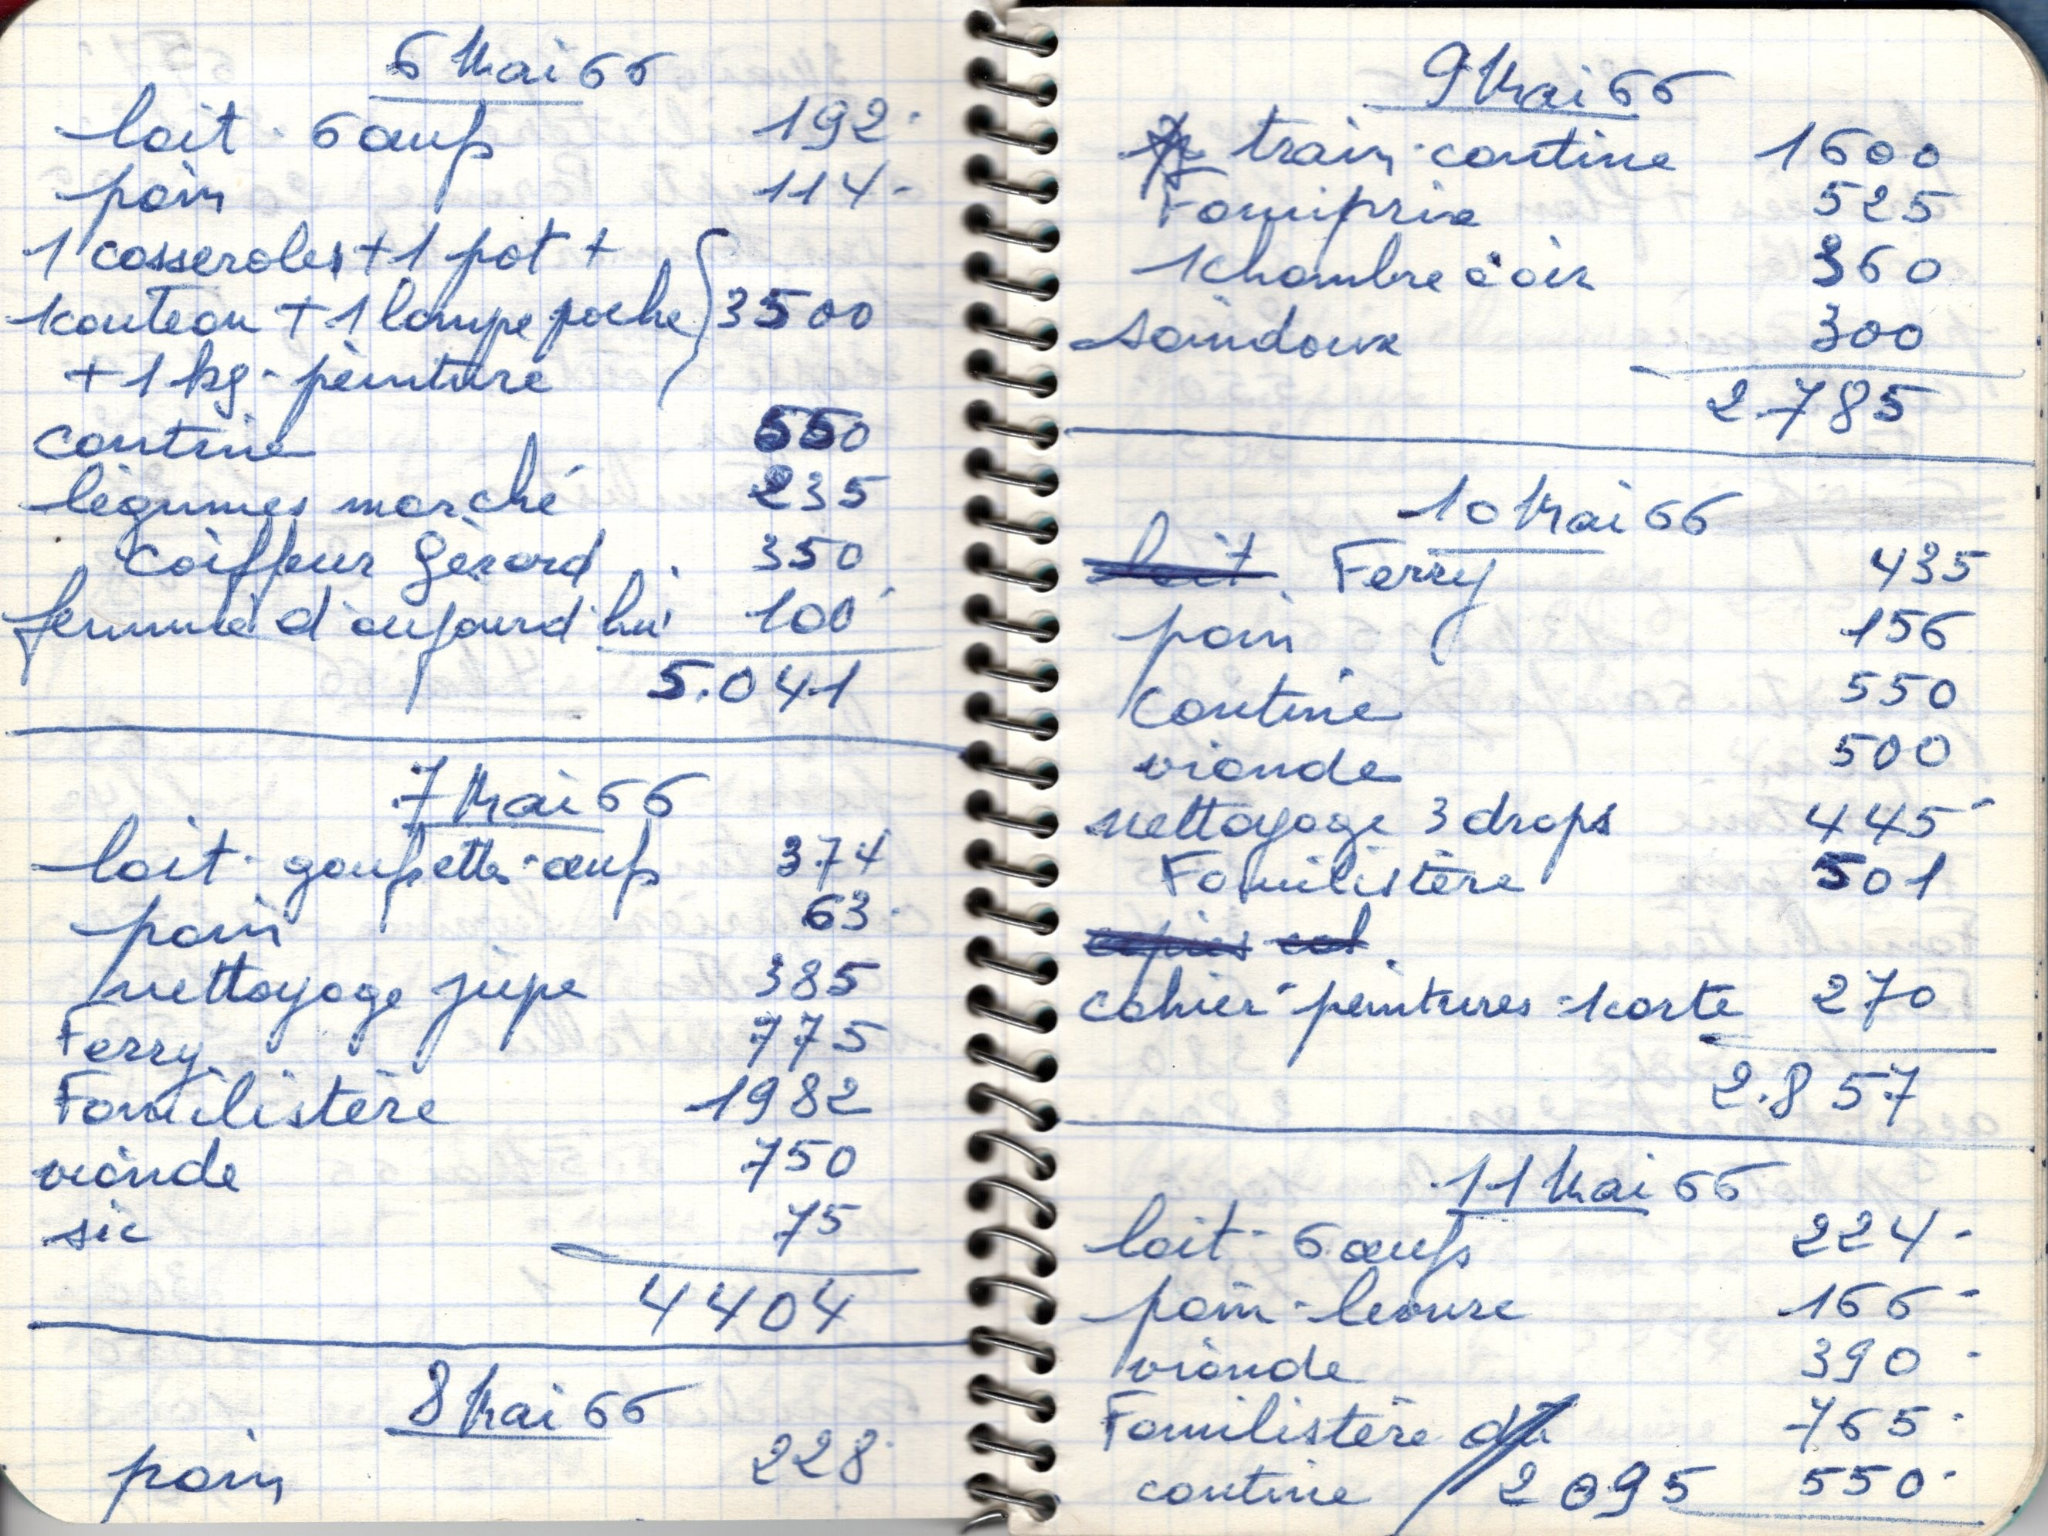 6 Mai 66
lait - 6 œufs 192 -
pain 114 -
1 casseroles + 1 pot +
1 couteau + 1 lampe poche 3500
+ 1 kg - peinture
cantine 550
légumes marché 235
coiffeur Gérard 350
femme d'aujourd'hui 100
5.041
7 Mai 66
lait - gaufrettes - œufs 374
pain 63 -
nettoyage jupe 385
Ferry 775
Familistère 1982
viande 750
sic 75
4404
8 Mai 66
pain 228
9 Mai 66
train - cantine 1600
Famiprix 525
1 chambre à air 360
saindoux 300
2.785
10 Mai 66
lait Ferry 435
pain 156
cantine 550
viande 500
nettoyage 3 draps 445 -
Familistère 501
cahier - peintures - 1 carte 270
2.857
11 Mai 66
lait - 6 œufs 224 -
pain - levure 166 -
viande 390 -
Familistère 765 -
cantine 2095 550 -